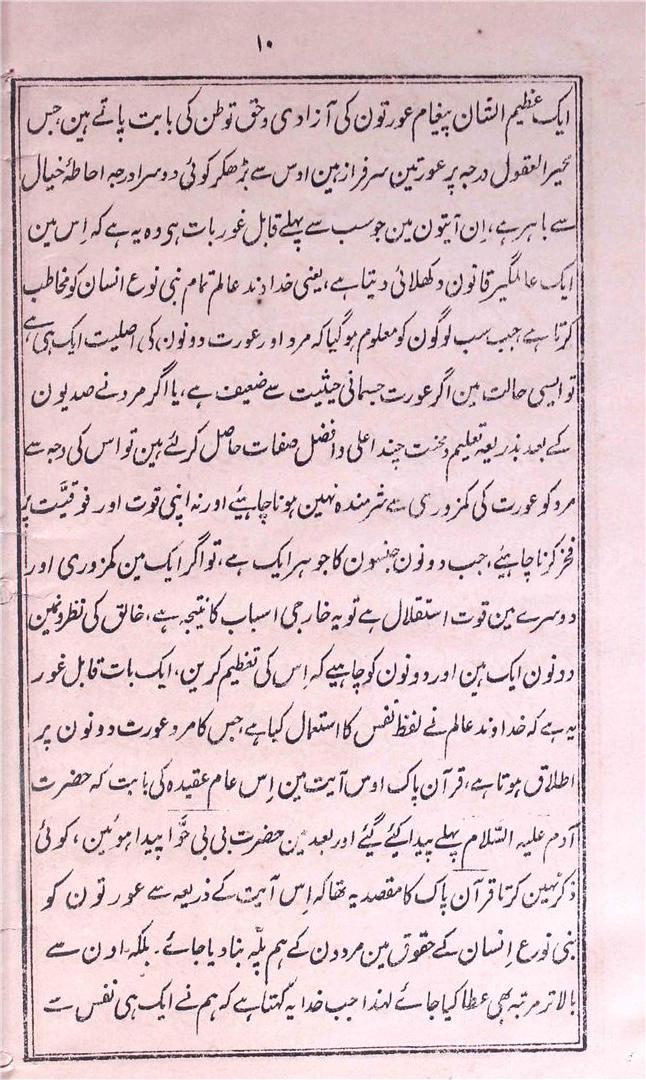 ۱۰
ایک عظیم الشان پیغام عورتون کی آزادی وحق توطن کی بابت پاتے ہین جس
محیر العقول درجہ پر عورتین سرفراز ہین اوس سے بڑھکر کوئی دوسرا درجہ احاطۂ خیال
سے باہر ہے، اِن آیتون مین جو سب سے پہلے قابل غور بات ہی وہ یہ ہے کہ اِس مین
ایک عالمگیر قانون دکھلائی دیتا ہے، یعنی خداوند عالم تمام بنی نوع انسان کو مخاطب
کرتا ہے جب سب لوگون کو معلوم ہوگیا کہ مرد اور عورت دونون کی اصلیت ایک ہی ہے
تو ایسی حالت مین اگر عورت جسمانی حیثیت سے ضعیف ہے، یا اگر مرد نے صدیون
کے بعد بذریعہ تعلیم ومحنت چند اعلی وافضل صفات حاصل کرلئے ہین تو اس کی وجہ سے
مرد کو عورت کی کمزوری سے شرمندہ نہین ہونا چاہیئے اور نہ اپنی قوت اور فوقیَّت پر
فخر کرنا چاہیئے، جب دونون جنسون کا جوہر ایک ہے، تو اگر ایک مین کمزوری اور
دوسرے مین قوت استقلال ہے تو یہ خارجی اسباب کا نتیجہ ہے، خالق کی نظرونمین
دونون ایک ہین اور دونون کو چاہیے کہ اِس کی تعظیم کرین، ایک بات قابل غور
یہ ہے کہ خداوند عالم نے لفظ نفس کا استعمال کیا ہے، جس کا مرد عورت دونون پر
اطلاق ہوتا ہے، قرآن پاک اوس آیت مین اِس عام عقیدہ کی بابت کہ حضرت
آدم علیہ السَّلام پہلے پیدا کیئے گیئے اور بعد مین حضرت بی بی حوَّا پیدا ہوئین، کوئی
ذکر نہین کرتا قرآن پاک کا مقصد یہ تھا کہ اِس آیت کے ذریعہ سے عورتون کو
بنی نوع اِنسان کے حقوق مین مردون کے ہم پلّہ بنا دیا جائے۔ بلکہ اون سے
بالاتر مرتبہ بھی عطا کیا جائے لہذا جب خدا یہ کہتا ہے کہ ہم نے ایک ہی نفس سے